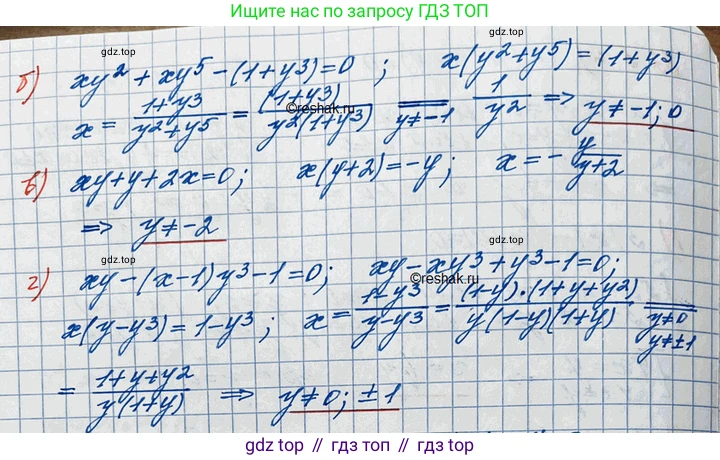 Ищите нас по запросу ГДЗ ТОП
gdz.top
б) xy² + xy⁵ - (1+y³) = 0 ; x(y²+y⁵) = (1+y³)
x = 1+y³/y²+y⁵ = (1+y³)/y²(1+y³) y≠-1 1/y² => y≠-1; 0
©reshak.ru
в) xy+y+2x=0; x(y+2)=-y; x = - y/y+2
=> y≠-2
gdz.top
gdz.top
г) xy-(x-1)y³-1=0; xy-xy³+y³-1=0;
©reshak.ru
x(y-y³)=1-y³; x = 1-y³/y-y³ = (1-y)·(1+y+y²)/y(1-y)(1+y) y≠0 y≠±1
= 1+y+y²/y(1+y) => y≠0; ±1
gdz.top
gdz.top
gdz top // гдз топ // gdz top